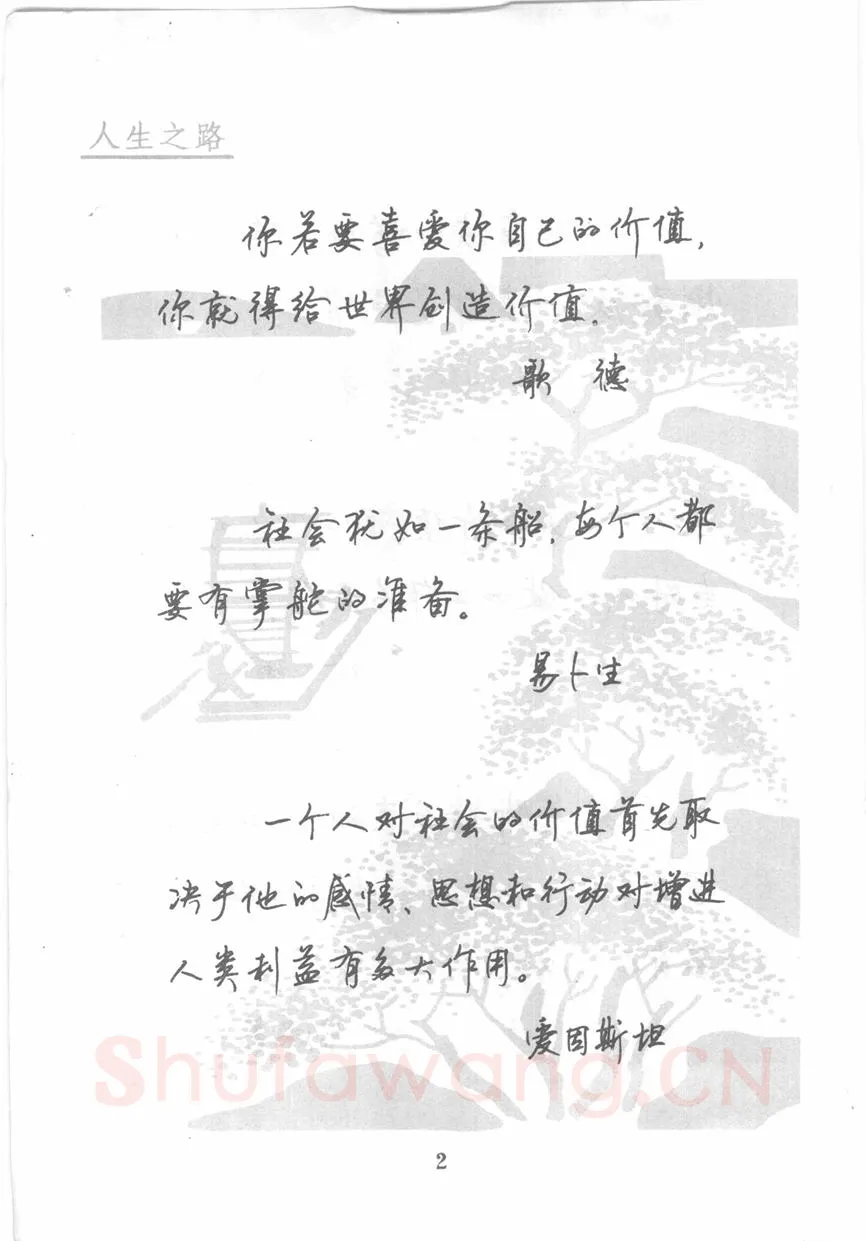 人生之路
你若要喜爱你自己的价值，
你就得给世界创造价值。
歌 德
社会犹如一条船，每个人都
要有掌舵的准备。
易卜生
一个人对社会的价值首先取
决于他的感情、思想和行动对增进
人类利益有多大作用。
爱因斯坦
Shufawang.CN
2